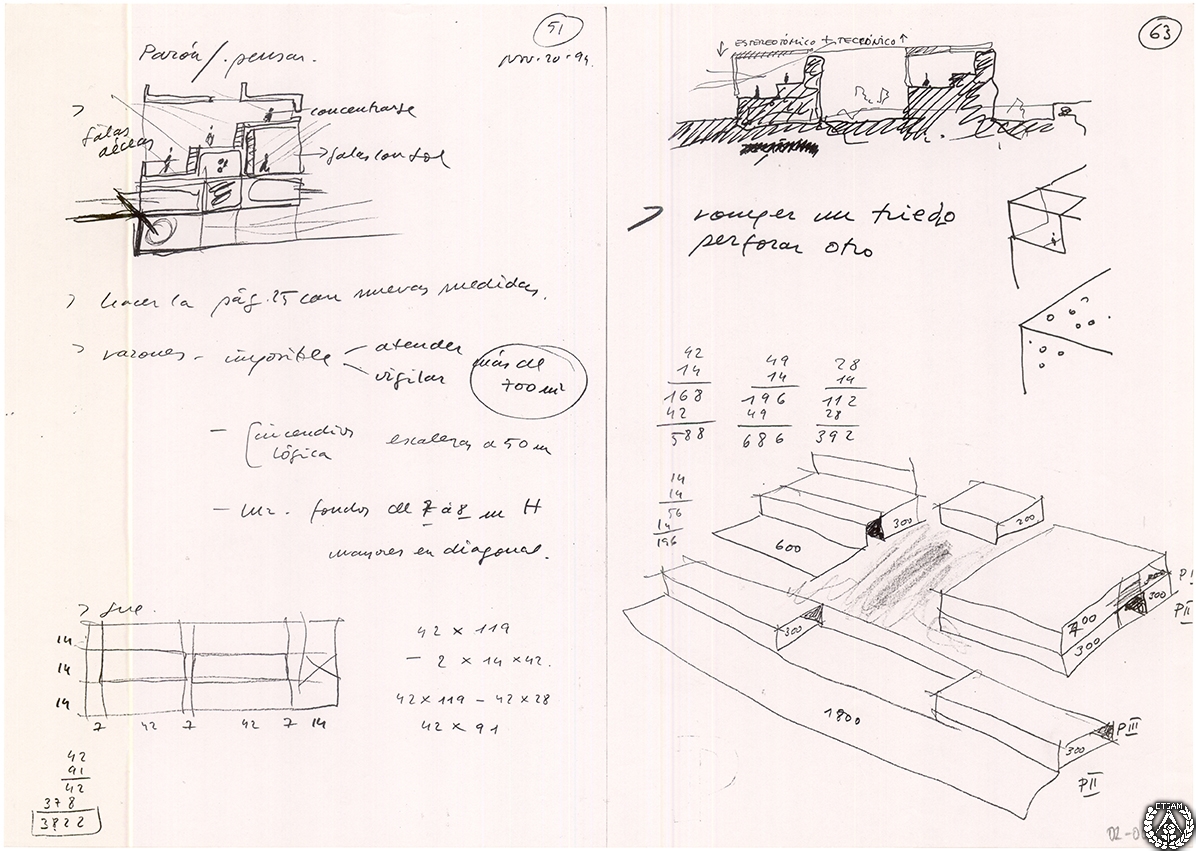 51
Parón/. pensar.
Nov. 20-94.
> salas
aéreas
concentrarse
> salas con sol
> hacer la pág. 25 con nuevas medidas.
> razones - imposible
atender
vigilar
más de
700 m²
- incendios
lógica
escaleras a 50 m
- luz. fondos de 7 a 8 m H
mayores en diagonal.
>
14
14
14
7 42 7 42 7 14
42 x 119
- 2 x 14 x 42.
42 x 119 - 42 x 28
42 x 91
42
91
42
378
3822
63
↓ ESTEREOTÓMICO + TECTÓNICO ↑
> romper un triedo
perforar otro
42
14
168
42
588
49
14
196
49
686
28
14
112
28
392
14
14
56
14
196
600
300
200
300
700
300
300
PI
PII
1800
300
PIII
PII
ETSAM